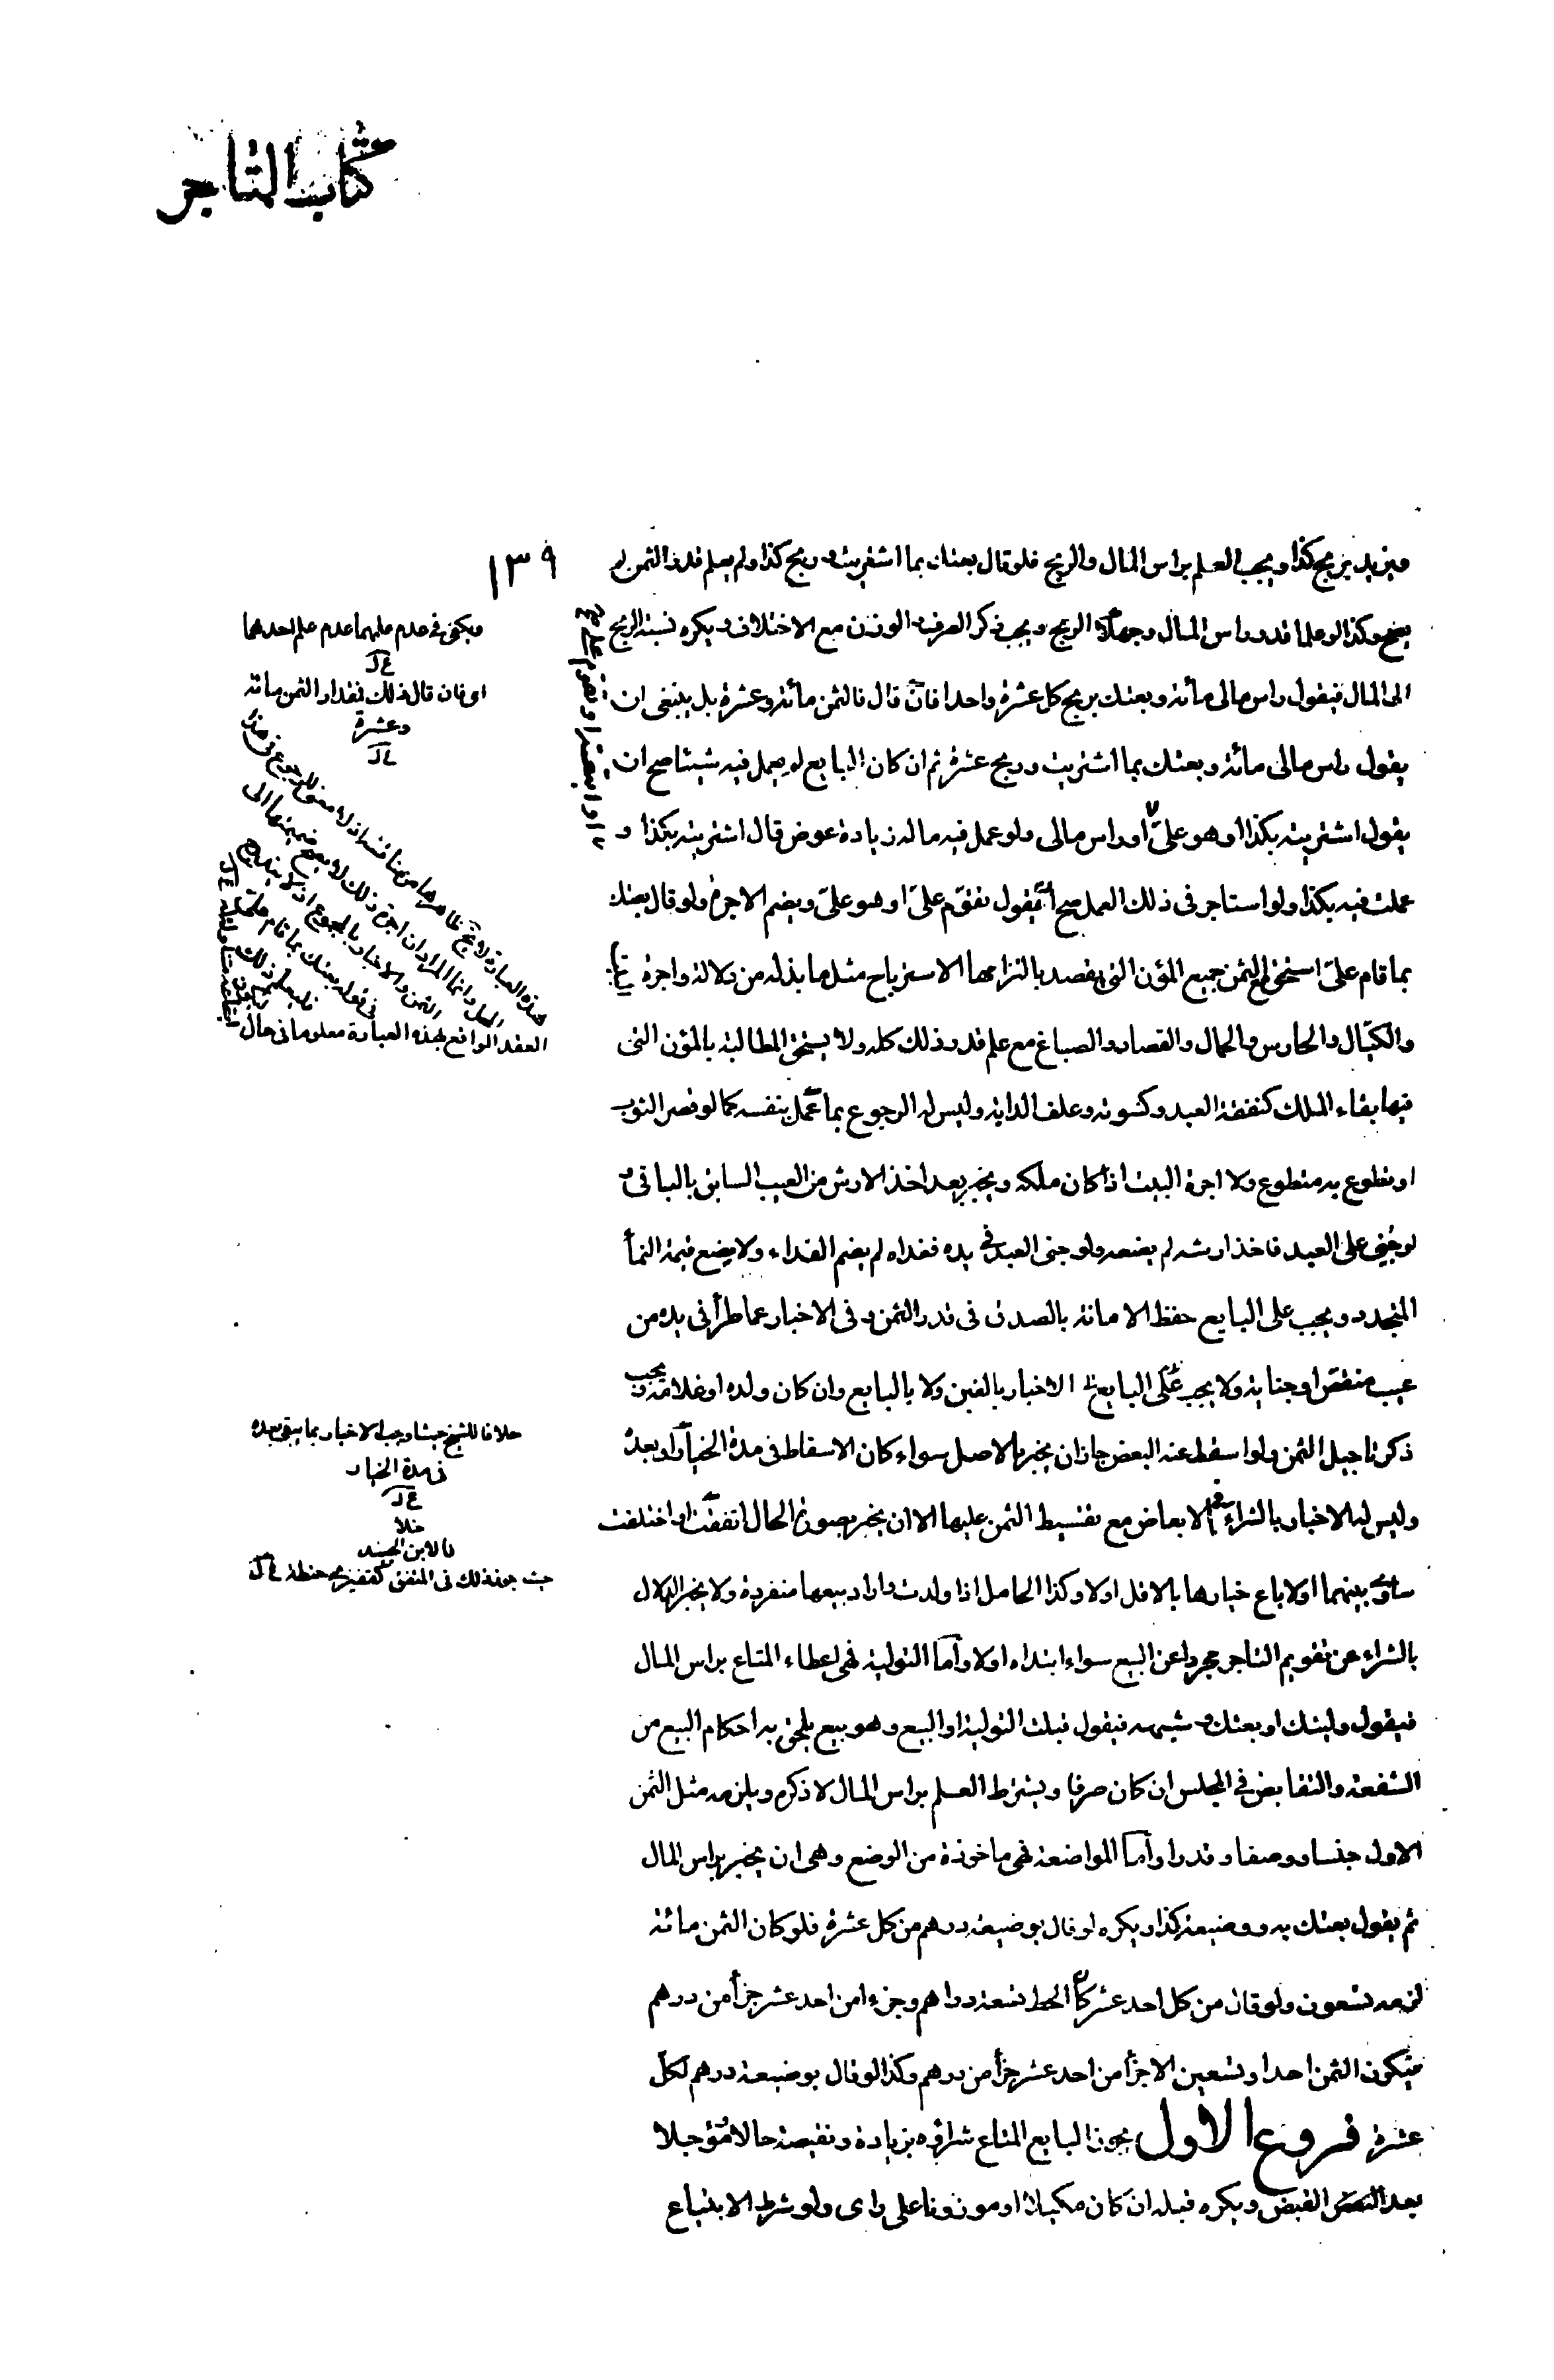 كتاب المتاجر
١٣٩
ويزيد بربح كذا ويجب العلم براس المال والربح فلو قال بعتك بما اشتريت وربح كذا ولم يعلم قدر الثمن لم
يصح وكذا لو علما قدر راس المال وجهلا الربح ويجب ذكر الصرف والوزن مع الاختلاف ويكره نسبة الربح
الى المال فيقول راس مالى مائة وبعتك بربح كل عشرة واحدا فان قال فالثمن مائة وعشرة بل ينبغى ان
يقول راس مالى مائة وبعتك بما اشتريت وربح عشرة ثم ان كان البايع لم يعمل فيه شيئا صح ان
يقول اشتريته بكذا او هو علىّ او راس مالى ولو عمل فيه ماله زيادة عوض قال اشتريته بكذا و
عملت فيه بكذا ولو استاجر فى ذلك العمل صح ان يقول تقوّم علىّ او هو علىّ ويضم الاجرة ولو قال بعتك
بما قام علىّ استحق مع الثمن جميع المؤن التى يقصد بالتزامها الاسترباح مثل ما بذله من دلالة واجرة
والكيّال والحارس والحمال والقصار والصباغ مع علم قدر ذلك كله ولا يستحق المطالبة بالمؤن التى
فيها بقاء الملك كنفقة العبد وكسوته وعلف الدابة وليس له الرجوع بما عمل بنفسه كما لو قصر الثوب
او تطوع به متطوع ولا اجرة البيت اذا كان ملكه ويخبر بعد اخذ الارش من العيب السابق بالباقى و
لو جنى على العبد فاخذ ارشه لم يضعه ولو جنى العبد فى يده ففداه لم يضم الفداء ولا يضع قيمة النمأ
المتجدد ويجب على البايع حفظ الامانة بالصدق فى قدر الثمن وفى الاخبار عما طرأ فى يده من
عيب منقص او جناية ولا يجب على البايع الاخبار بالغبن ولا بالبايع وان كان ولده او غلامه ويجب
ذكر تاجيل الثمن ولو اسقط عنه البعض جاز ان يخبر بالاصل سواء كان الاسقاط فى مدة الخيار او بعده
وليس له الاخبار بالشراء فى الابعاض مع تقسيط الثمن عليها الا ان يخبر بصورة الحال اتفقت او اختلفت
ساوى بينهما او لا باع خيارها بالاقل او لا وكذا الحامل اذا ولدت واراد بيعها منفردة ولا يخبر الدلال
بالشراء عن تقويم التاجر مجردا عن البيع سواء ابتداه او لا وأما التولية فهى اعطاء المتاع براس المال
فيقول وليتك او بعتك وشبهه فيقول قبلت التولية او البيع وهو بيع يلحق به احكام البيع من
الشفعة والتقابض فى المجلس ان كان صرفا ويشترط العلم براس المال لا ذكره ويلزمه مثل الثمن
الاول جنسا ووصفا وقدرا وأما المواضعة فهى ماخوذة من الوضع وهى ان يخبر براس المال
ثم يقول بعتك به ووضيعة كذا ويكره لو قال بوضيعة درهم من كل عشرة فلو كان الثمن مائة
لزمه تسعون ولو قال من كل احد عشر كان الحط تسعة دراهم وجزءا من احد عشر جزأ من درهم
فيكون الثمن احدا وتسعين الا جزأ من احد عشر جزأ من درهم وكذا لو قال بوضيعة درهم لكل
عشرة فروع الاول يجوز للبايع المتاع شراؤه بزيادة ونقيصة حالا ومؤجلا
بعد القبض ويكره قبله ان كان مكيلا او موزونا على راى ولو شرط الابتياع
ويكفى فى عدم علمهما عدم علم احدهما
اى فان قال ذلك فقدار الثمن مائة
وعشرة
العقد الواقع لهذه العبارة معلوما فى حال
خلافا للشيخ حيث اوجب الاخبار بما يبقى بعده
فى مدة الخيار
خلا
فا لابن الجنيد
حيث جوز ذلك فى المتفق كقفيزى حنطة